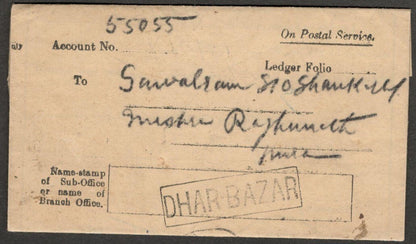 55055
On Postal Service.
Account No.
Ledger Folio
To Sawalram S/o Shankarlal
Mishra Raghunath
Name-stamp
of Sub-Office
or name of
Branch Office.
DHAR BAZAR